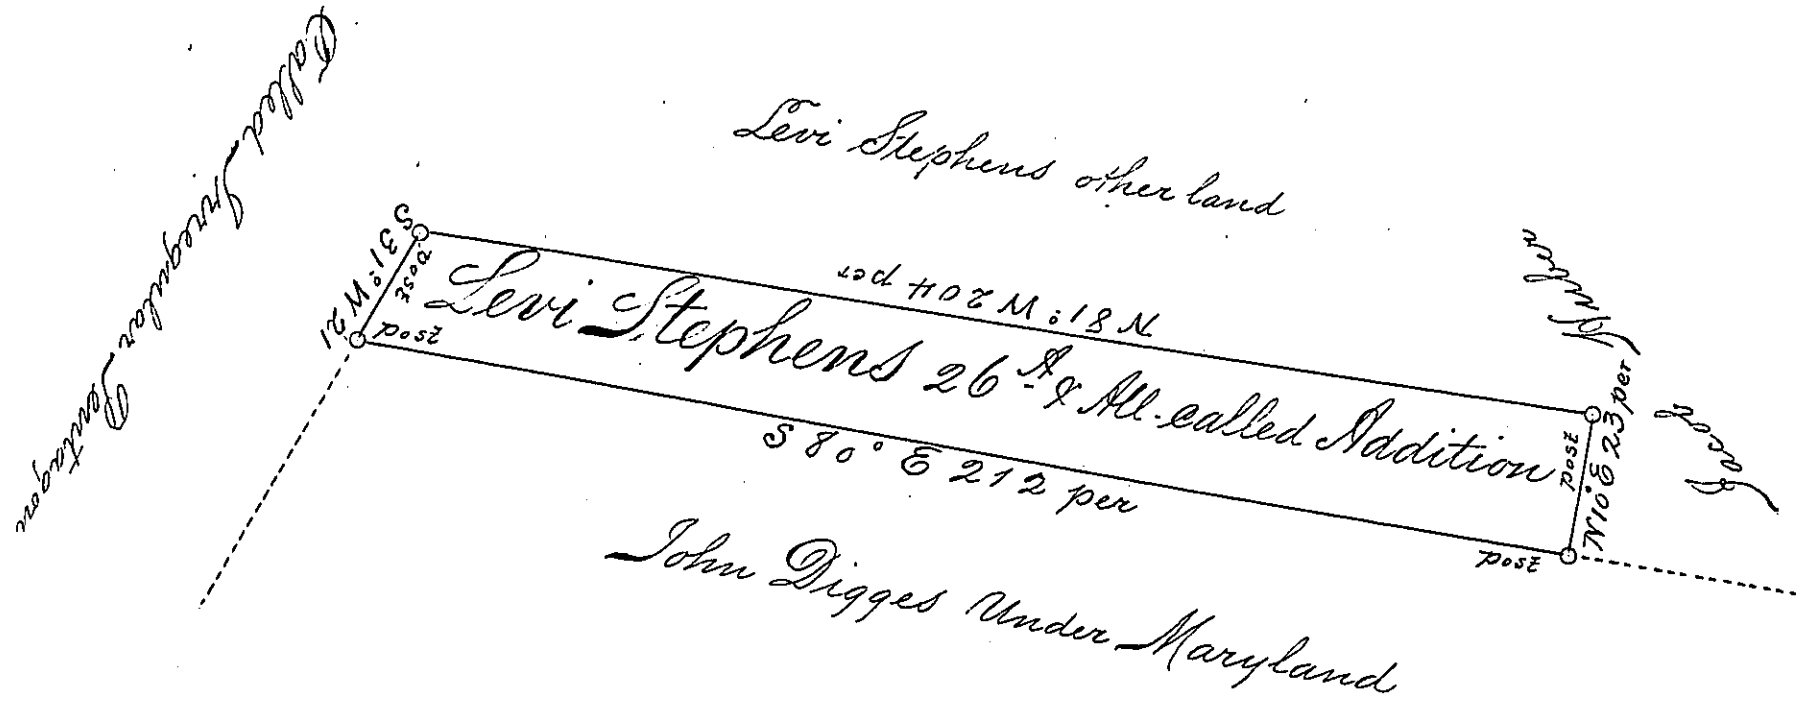 Called Irregular Pentagon
Levi Stephens other land
S 31° W 21
post
post
N 81° W 204 per
Levi Stephens 26 A & All. called Addition
S 80° E 212 per
post
post
N 10° E 23 per
Jacob
John Digges Under Maryland